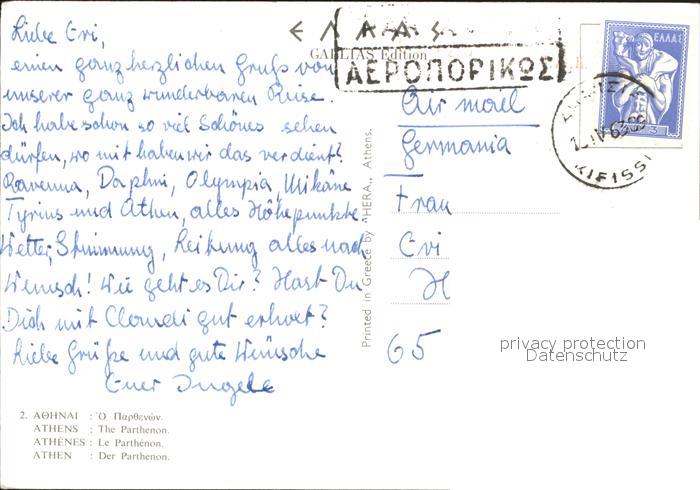 Liebe Evi,
einen ganz herzlichen Gruß von
unserer ganz wunderbaren Reise.
Ich habe schon so viel Schönes sehen
dürfen, wo mit haben wir das verdient?
Ravenna, Daphni, Olympia, Mikäne
Tyrius und Athen, alles Höhepunkte.
Wetter, Stimmung, Leitung alles nach
Wunsch! Wie geht es Dir? Hast Du
Dich mit Claudi gut erholt?
Liebe Grüße und gute Wünsche
Euer Ingele
2. ΑΘΗΝΑΙ : Ὁ Παρθενών.
ATHENS : The Parthenon.
ATHÈNES : Le Parthénon.
ATHEN : Der Parthenon.
Printed in Greece by "HERA,, Athens.
GALLIAS Edition
ΑΕΡΟΠΟΡΙΚΩΣ
Air mail
Germania
Frau
Evi
H
65
ΕΛΛΑΣ
3
KIFISSI
privacy protection
Datenschutz